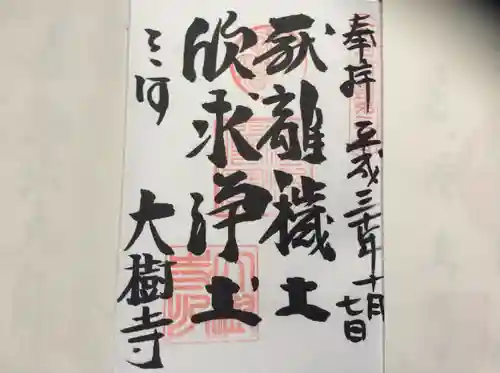 奉拝 平成三十年十月七日
厭離穢土
欣求浄土
三河
大樹寺